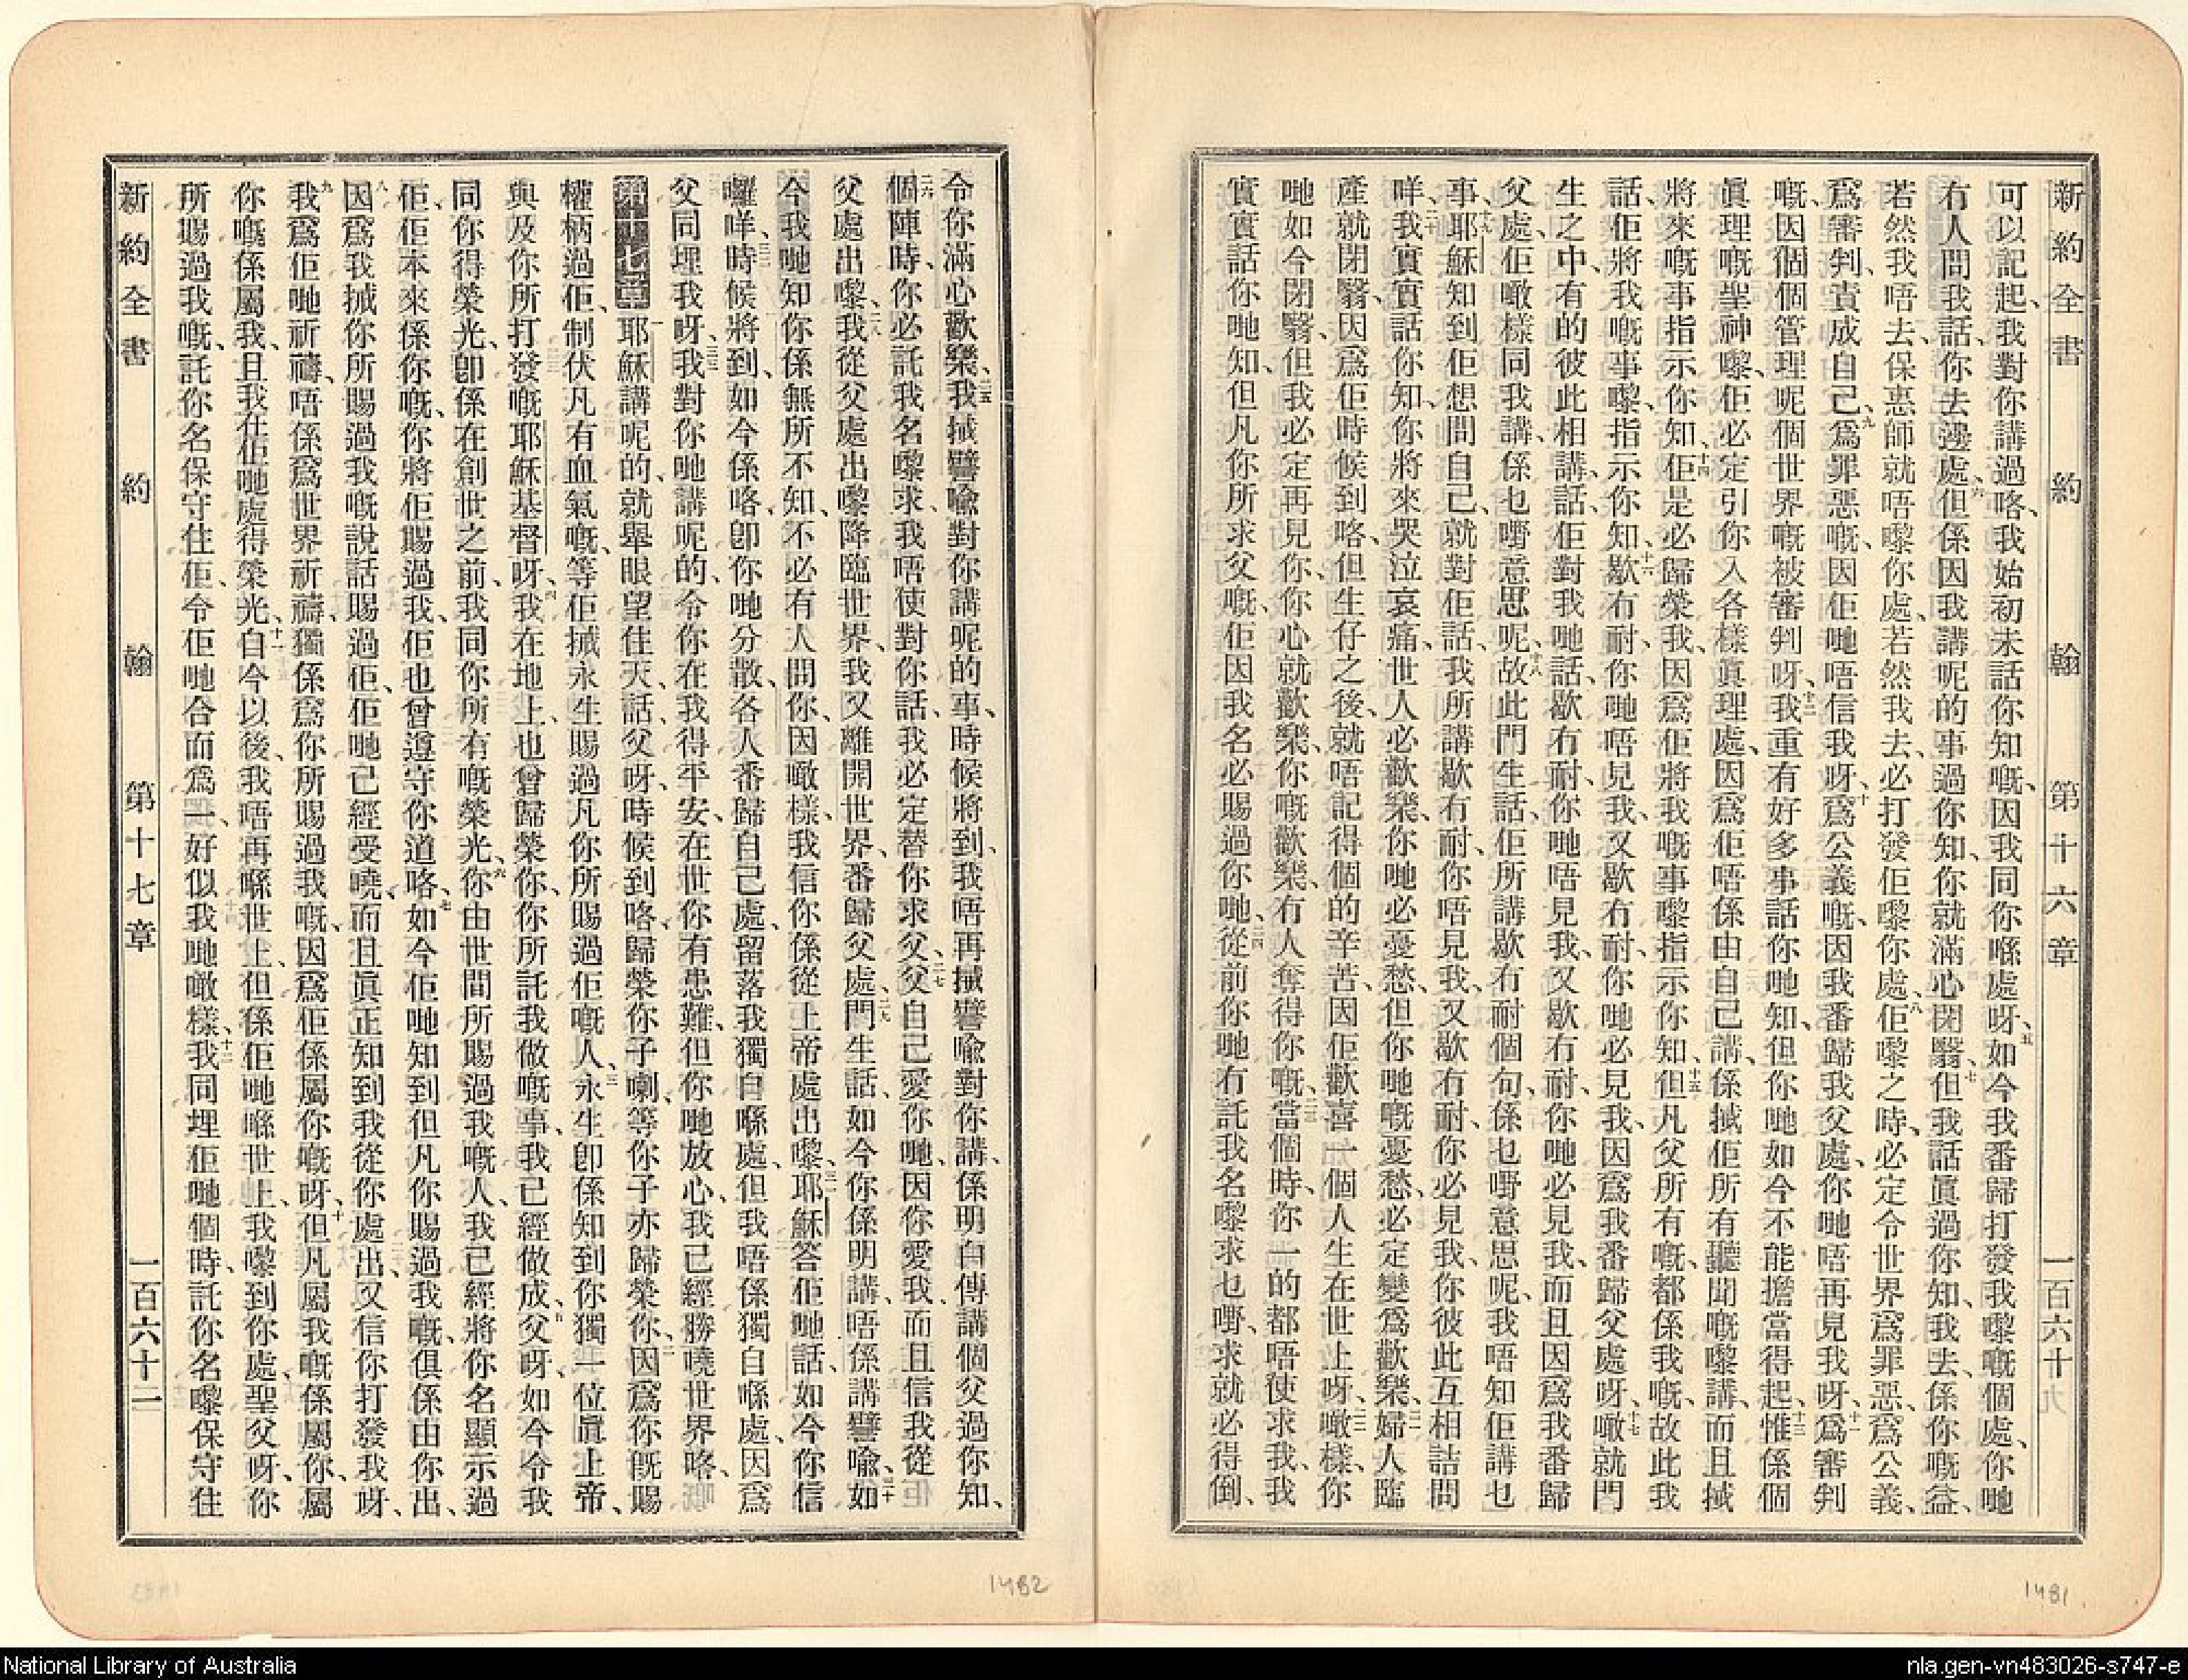 新約全書 約翰 第十六章 一百六十
可以記起、我對你講過咯、我始初未話你知嘅、因我同你喺處呀、五如今我番歸打發我嚟嘅個處、你哋
冇人問我話、你去邊處、六但係因我講呢的事過你知、你就滿心閉翳、七但我話眞過你知、我去、係你嘅益、
若然我唔去、保惠師就唔嚟你處、若然我去、必打發佢嚟你處、八佢嚟之時、必定令世界爲罪惡、爲公義、
爲審判、責成自己、九爲罪惡嘅、因佢哋唔信我呀、十爲公義嘅、因我番歸我父處、你哋唔再見我呀、十一爲審判
嘅、因個個管理呢個世界嘅被審判呀、十二我重有好多事話你哋知、但你哋如今不能擔當得起、十三惟係個
眞理嘅聖神嚟、佢必定引你入各樣眞理處、因爲佢唔係由自己講、係搣佢所有聽聞嘅嚟講、而且搣
將來嘅事指示你知、十四佢是必歸榮我、因爲佢將我嘅事嚟指示你知、十五但凡父所有嘅、都係我嘅、故此我
話、佢將我嘅事嚟、指示你知、十六歇冇耐、你哋唔見我、又歇冇耐、你哋必見我、因爲我番歸父處呀、十七噉就門
生之中、有的彼此相講、話、佢對我哋話、歇冇耐、你哋唔見我、又歇冇耐、你哋必見我、而且因爲我番歸
父處、佢噉樣同我講、係乜嘢意思呢、十八故此門生話、佢所講歇冇耐個句、係乜嘢意思呢、我唔知佢講乜
事、十九耶穌知到佢想問自己、就對佢話、我所講歇冇耐、你唔見我、又歇冇耐、你必見我、你彼此互相詰問
咩、二十我實實話你知、你將來哭泣哀痛、世人必歡樂、你哋必憂愁、但你哋嘅憂愁、必定變爲歡樂、二一婦人臨
產就閉翳、因爲佢時候到咯、但生仔之後、就唔記得個的辛苦、因佢歡喜一個人生在世上呀、二二噉樣、你
哋如今閉翳、但我必定再見你、你心就歡樂、你嘅歡樂、冇人奪得你嘅、二三當個時、你一的都唔使求我、我
實實話你哋知、但凡你所求父嘅、佢因我名必賜過你哋、二四從前你哋冇託我名嚟求乜嘢、求就必得倒、
令你滿心歡樂、二五我搣譬喩對你講呢的事、時候將到、我唔再搣譬喩對你講、係明白傳講個父過你知、
二六個陣時、你必託我名嚟求、我唔使對你話、我必定替你求父、二七父自己愛你哋、因你愛我、而且信我從
父處出嚟、二八我從父處出嚟、降臨世界、我又離開世界、番歸父處、二九門生話、如今你係明講、唔係講譬喩、三十如
今我哋知你係無所不知、不必有人問你、因噉樣、我信你係從上帝處出嚟、三一耶穌答佢哋話、如今你信
囉咩、三二時候將到、如今係咯、卽你哋分散、各人番歸自己處、留落我獨自喺處、但我唔係獨自喺處、因爲
父同埋我呀、三三我對你哋講呢的、令你在我得平安、在世你有患難、但你哋放心、我已經勝曉世界咯、
第十七章 一耶穌講呢的、就舉眼望住天、話、父呀、時候到咯、歸榮你子喇、等你子亦歸榮你、二因爲你既賜
權柄過佢、制伏凡有血氣嘅、等佢搣永生賜過凡你所賜過佢嘅人、三永生卽係知到你獨一位眞上帝、
與及你所打發嘅耶穌基督呀、四我在地上、也曾歸榮你、你所託我做嘅事、我已經做成、五父呀、如今令我
同你得榮光、卽係在創世之前、我同你所有嘅榮光、六你由世間所賜過我嘅人、我已經將你名顯示過
佢、佢本來係你嘅、你將佢賜過我、佢也曾遵守你道咯、七如今佢哋知到但凡你賜過我嘅、俱係由你出、
八因爲我搣你所賜過我嘅說話賜過佢、佢哋已經受曉、而且眞正知到我從你處出、又信你打發我呀、
九我爲佢哋祈禱、唔係爲世界祈禱、獨係爲你所賜過我嘅、因爲佢係屬你嘅呀、十但凡屬我嘅係屬你、屬
你嘅係屬我、且我在佢哋處得榮光、十一自今以後、我唔再喺世上、但係佢哋喺世上、我嚟到你處、聖父呀、你
所賜過我嘅、託你名保守住佢、令佢哋合而爲一、好似我哋噉樣、十二我同埋佢哋個時、託你名嚟保守住
新約全書 約翰 第十七章 一百六十二
1482
1481
National Library of Australia
nla.gen-vn483026-s747-e